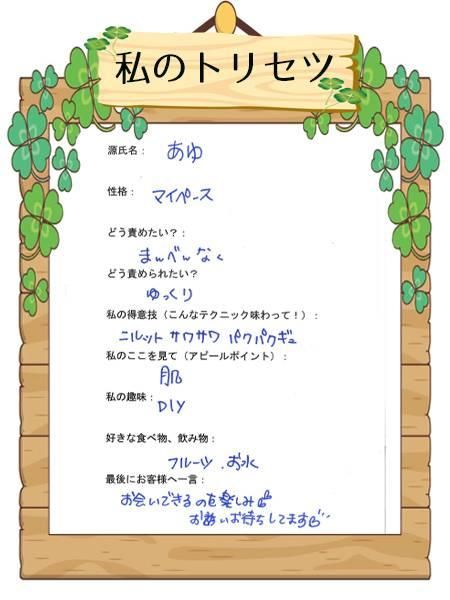 私のトリセツ
源氏名： あゆ
性格： マイペース
どう責めたい？：
まんべんなく
どう責められたい？
ゆっくり
私の得意技（こんなテクニック味わって！）：
ニルット サワサワ パクパクギュ
私のここを見て（アピールポイント）：
肌
私の趣味： DIY
好きな食べ物、飲み物：
フルーツ．お水
最後にお客様へ一言：
お会いできるのを楽しみ
お誘いお待ちしてます